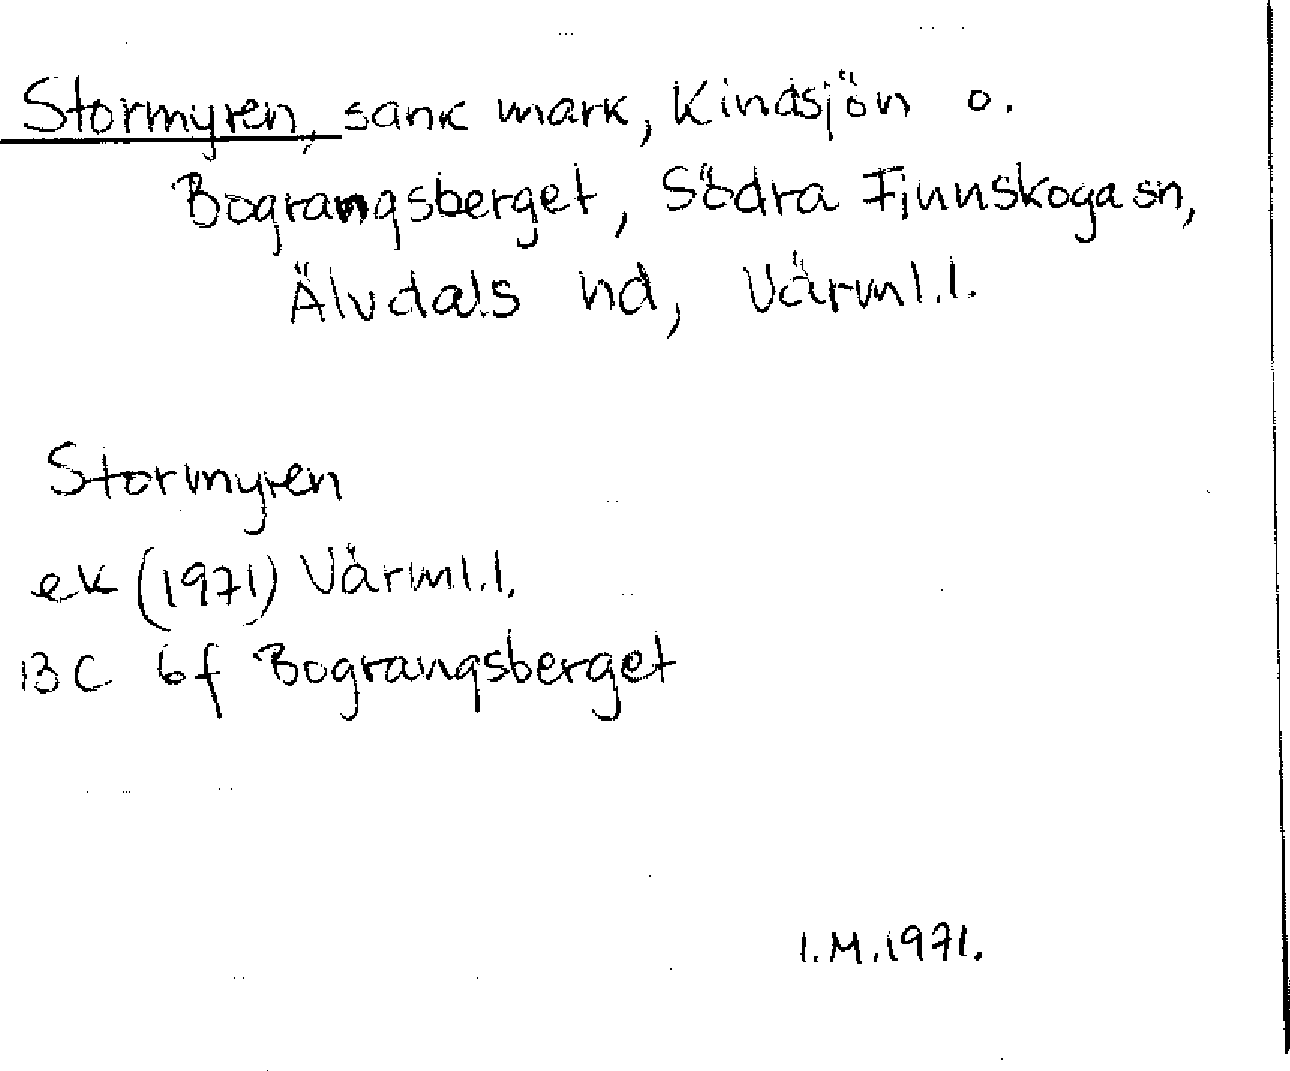 Stormyren, sank mark, Kindsjön o.
Bograngsberget, Södra Finnskoga sn,
Älvdals hd, Värml.l.
Stormyren
ek (1971) Värml.l.
13C 6f Bograngsberget
I.M.1971.